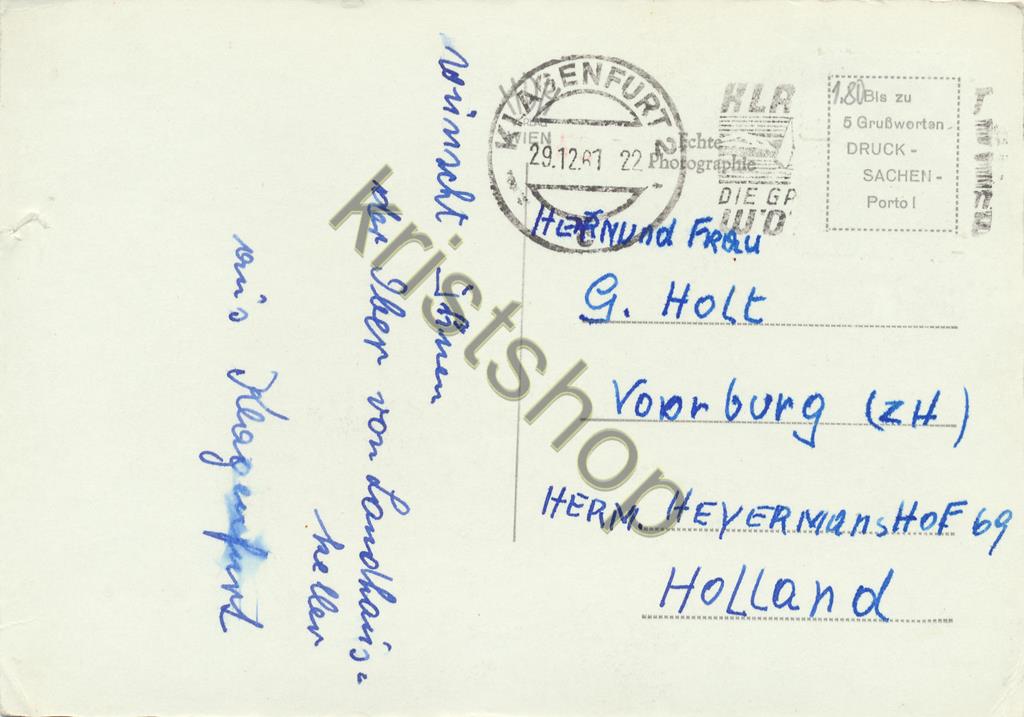 wünscht Ihnen
der Ober von Landhaus=
keller
aus Klagenfurt
KLAGENFURT 2
WIEN
29.12.61 22
Echte
Photographie
HLR
DIE GP
1.80
Bis zu
5 Grußworten
DRUCK-
SACHEN-
Porto!
HERRN und Frau
G. Holt
Voorburg (ZH)
HERM. HEYERMANSHOF 69
HOLLand
kristshop